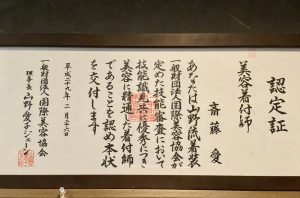 認定証
美容着付師
斎藤 愛
あなたは山野流着装
一般財団法人国際美容協会が
定めた技能審査において
技能識見共に優秀につき
美容に精通した着付師
であることを認め本状
を交付します
平成二十九年 二月二十六日
一般財団法人国際美容協会
理事長 山野愛子ジェーン